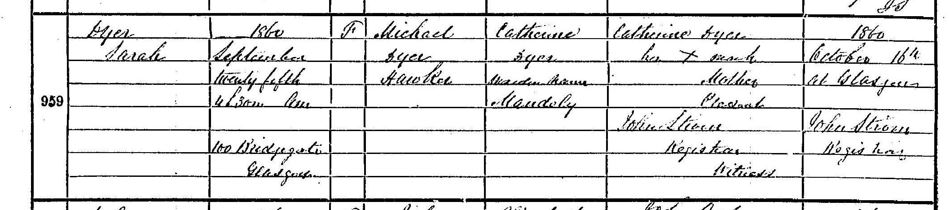 959
Dyer
Sarah
1860
September
twenty fifth
4h.30m Am
100 Bridgegate
Glasgow
F
Michael
Dyer
Hawker
Catherine
Dyer
Maiden Name
Mandely
Catherine Dyer
her x mark
Mother
John Strom
Registrar
Witness
1860
October 16th
at Glasgow
John Strom
Registrar